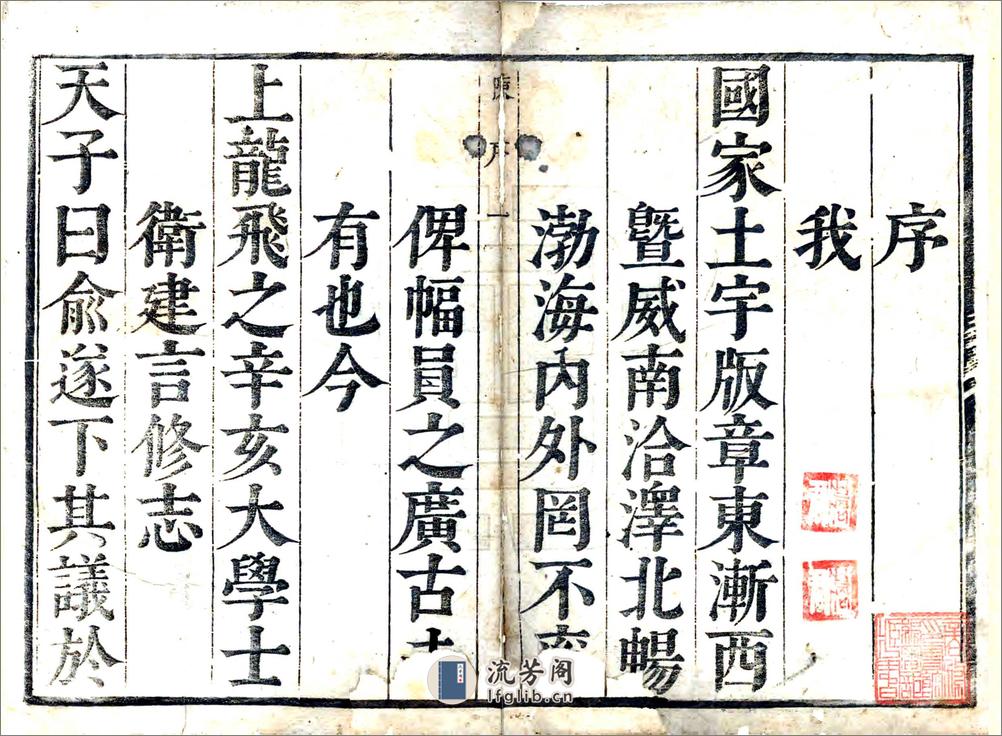 序
我
國家土宇版章東漸西
曁威南洽澤北暢
渤海内外罔不率
俾幅員之廣古未
有也今
上龍飛之辛亥大學士
衛建言修志
天子曰俞遂下其議於
陳
序
一
流芳阁
lfglib.cn